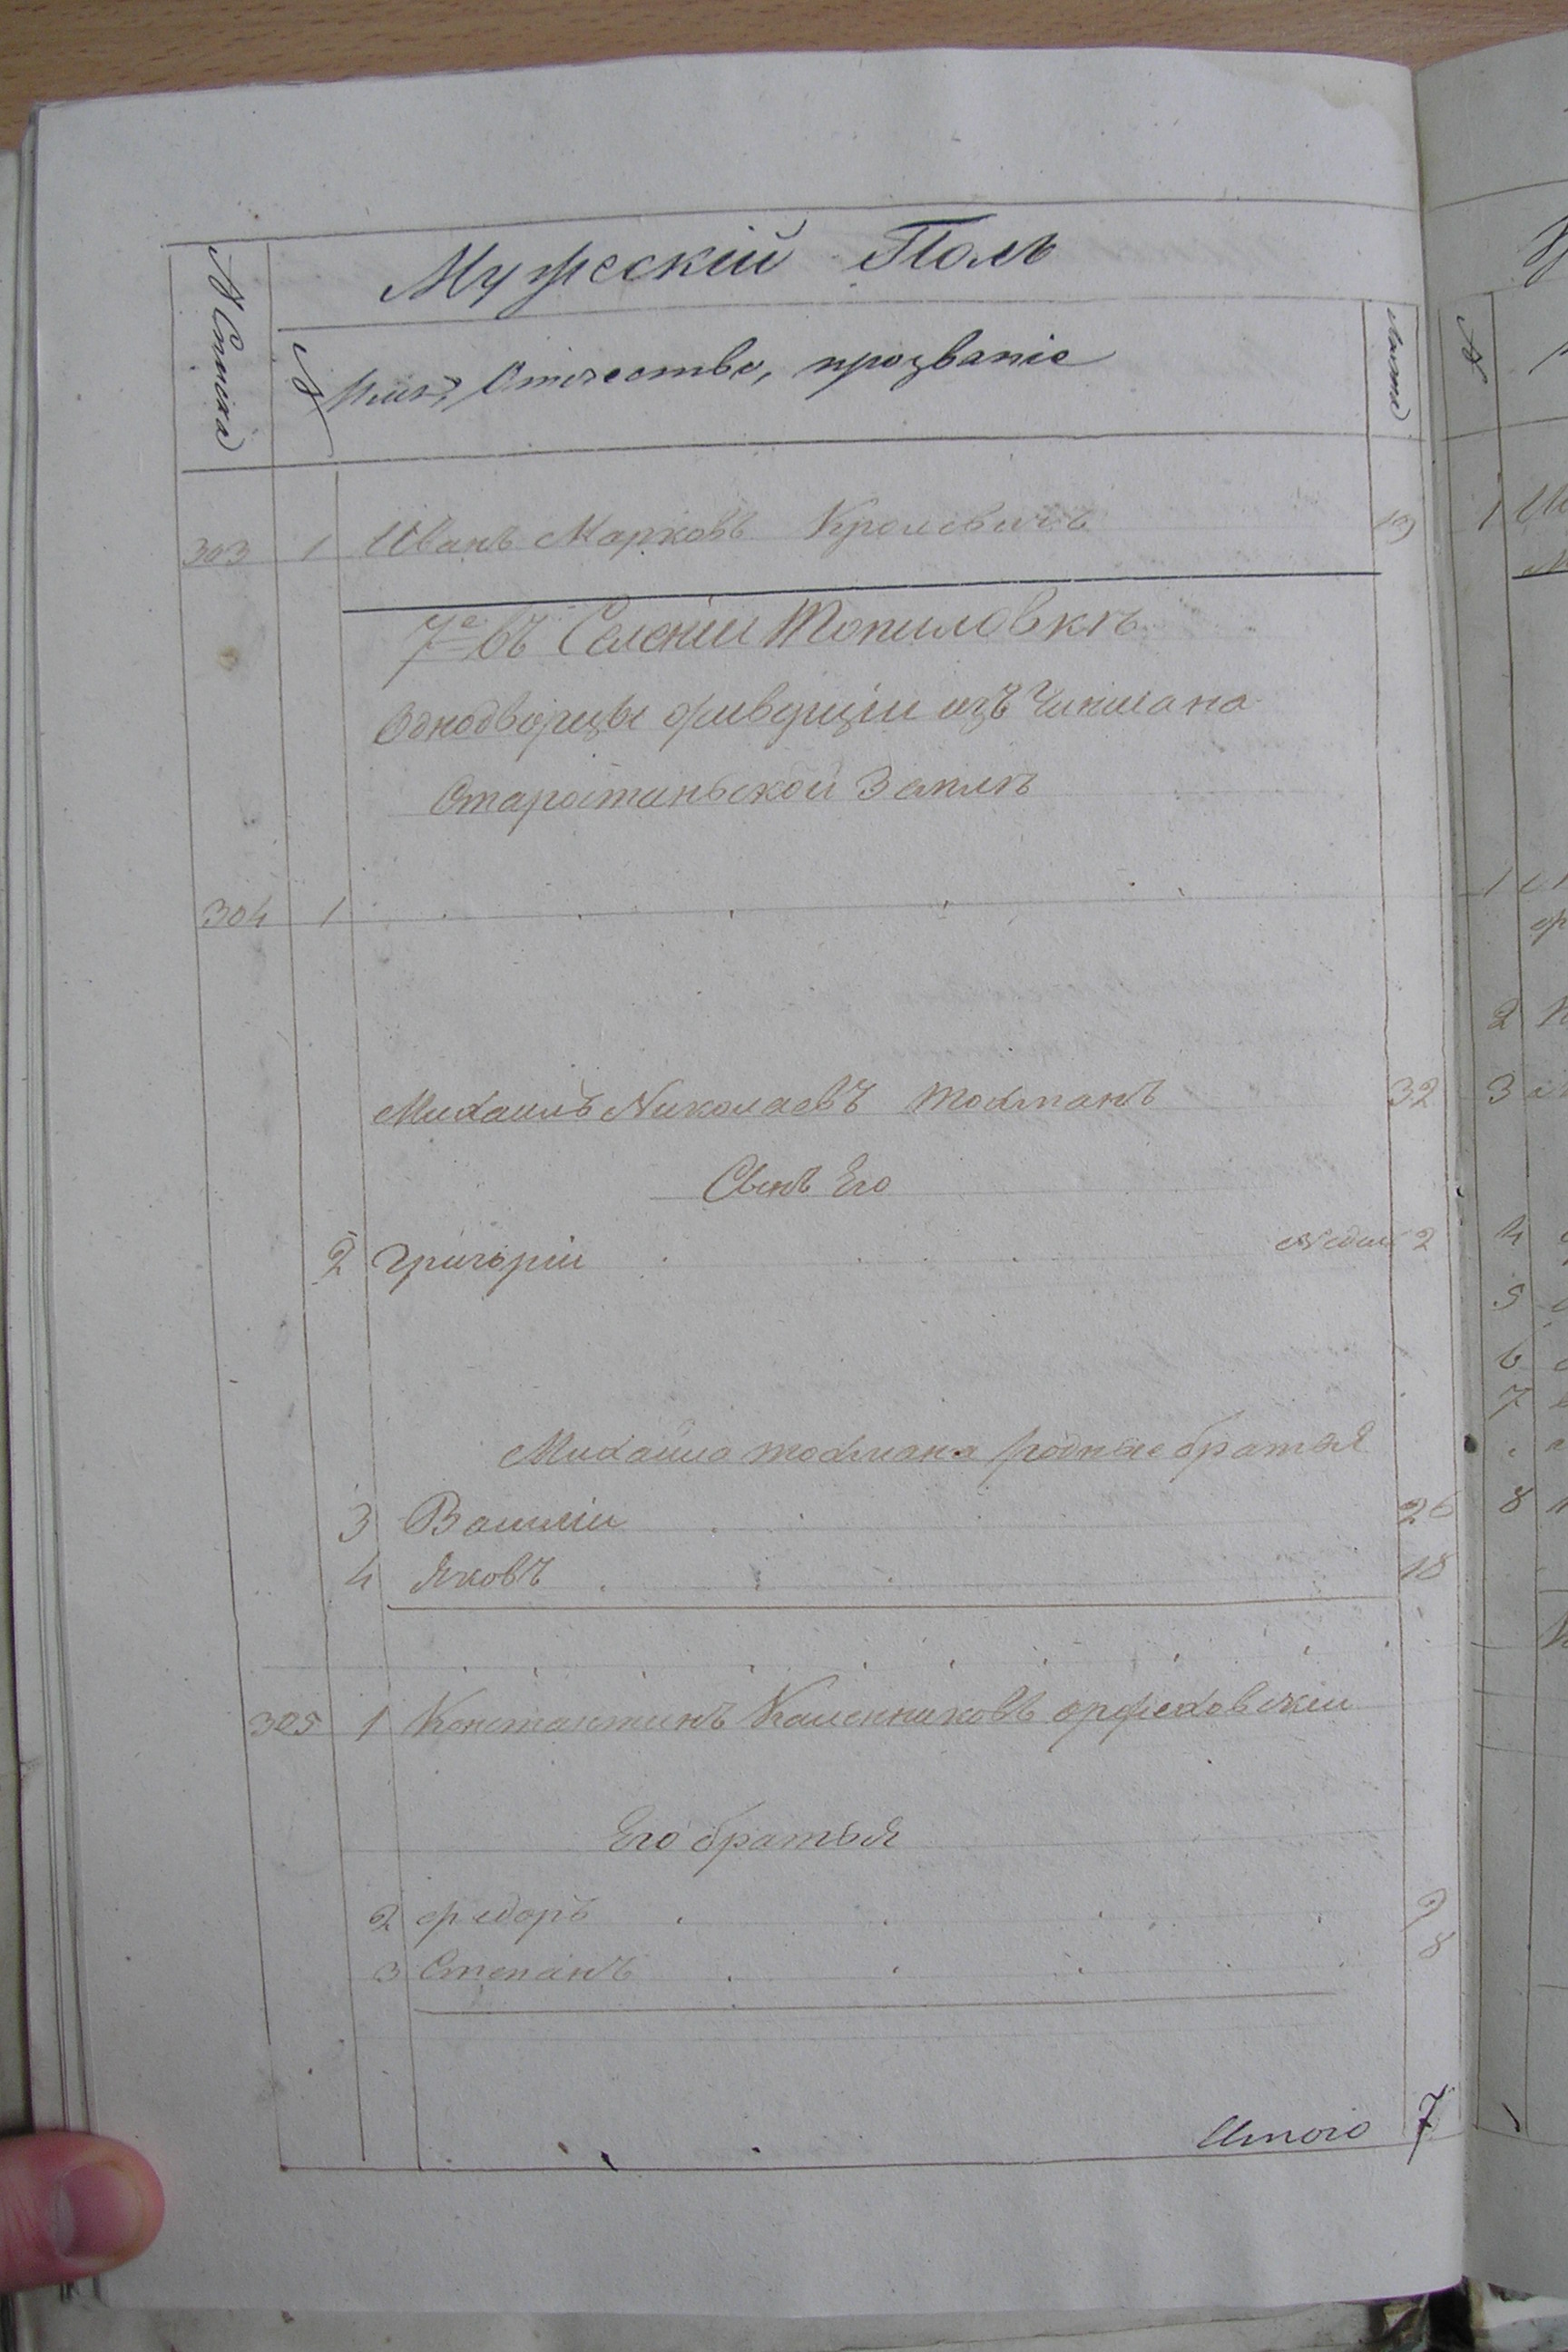 Мужескій Полъ
№ Списка
№
Имя, Отечество, прозваніе
Лѣта
303 1 Иванъ Марковъ Кролевичъ 19
7е въ Селеніи Топиловкѣ
Однодворцы живущіи изъ Чинша на
Старостинской Землѣ
304 1
Михаилъ Николаевъ Тохманъ 32
Сынъ Его
2 Григоріи Недѣл 2
Михаила Тохмана родные братья
3 Василіи 26
4 Яковъ 18
305 1 Константинъ Оржеховскіи
Его братья
2 Федоръ 9
3 Степанъ 8
Итого 7